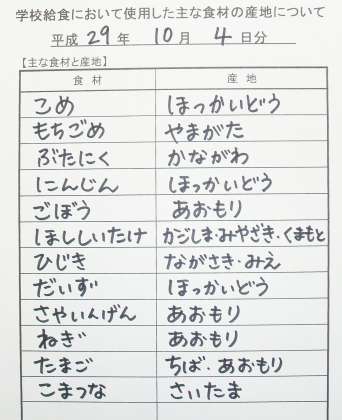 学校給食において使用した主な食材の産地について
平成 29 年 10 月 4 日分
【主な食材と産地】
食 材 産 地
こめ ほっかいどう
もちごめ やまがた
ぶたにく かながわ
にんじん ほっかいどう
ごぼう あおもり
ほししいたけ かごしま・みやざき・くまもと
ひじき ながさき・みえ
だいず ほっかいどう
さやいんげん あおもり
ねぎ あおもり
たまご ちば・あおもり
こまつな さいたま